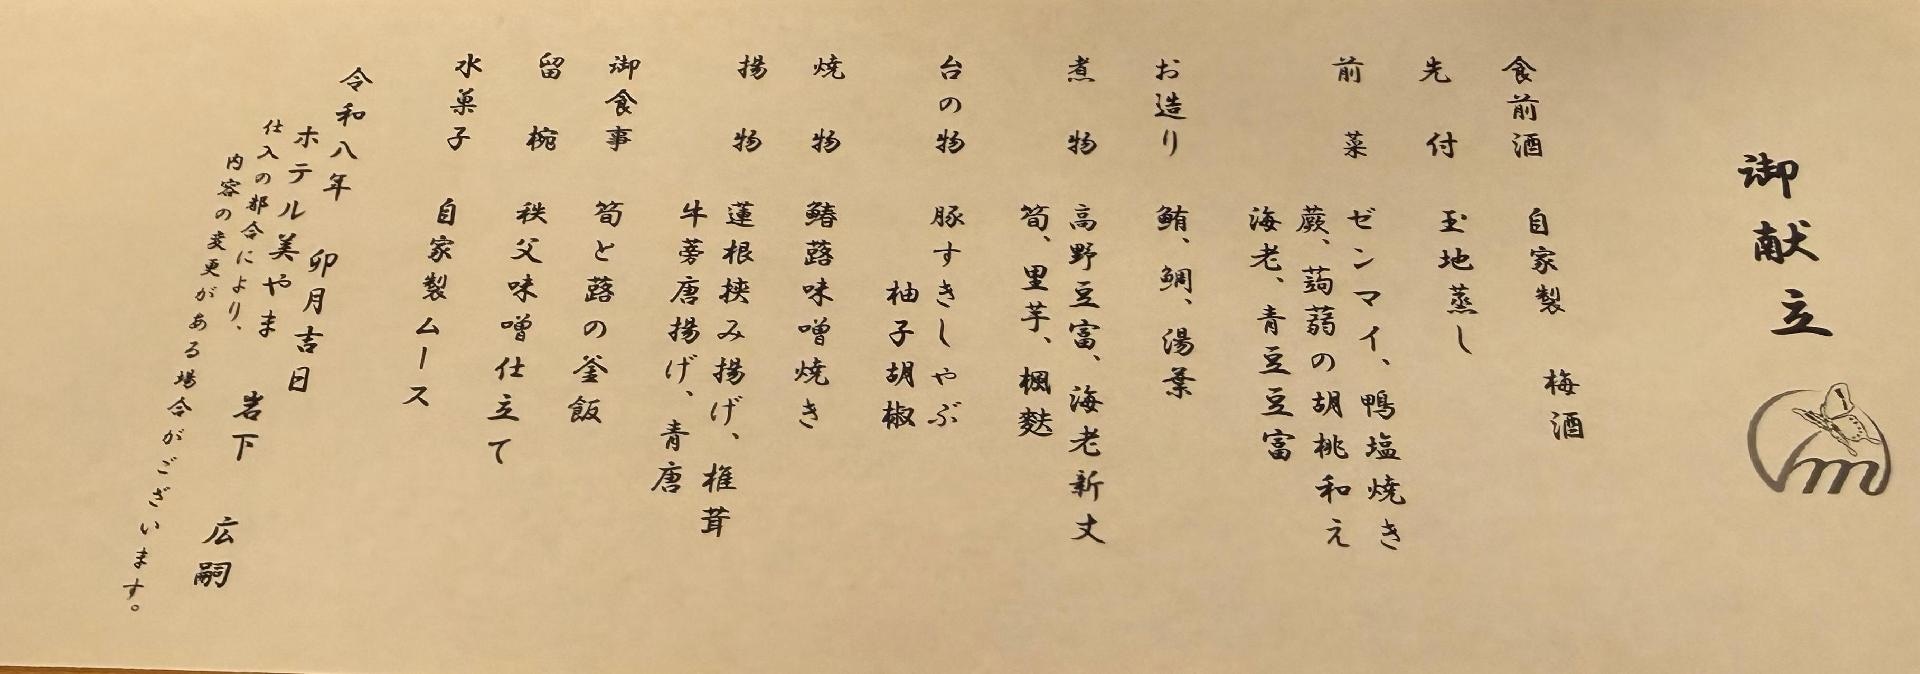 御献立
食前酒 自家製 梅酒
先付 玉地蒸し
前菜 ゼンマイ、鴨塩焼き
蕨、蒟蒻の胡桃和え
海老、青豆豆富
お造り 鮪、鯛、湯葉
煮物 高野豆富、海老新丈
筍、里芋、楓麩
台の物 豚すきしゃぶ
柚子胡椒
焼物 鰆蕗味噌焼き
揚物 蓮根挟み揚げ、椎茸
牛蒡唐揚げ、青唐
御食事 筍と蕗の釜飯
留椀 秩父味噌仕立て
水菓子 自家製ムース
令和八年 卯月吉日
ホテル美やま 岩下 広嗣
仕入の都合により、
内容の変更がある場合がございます。
m